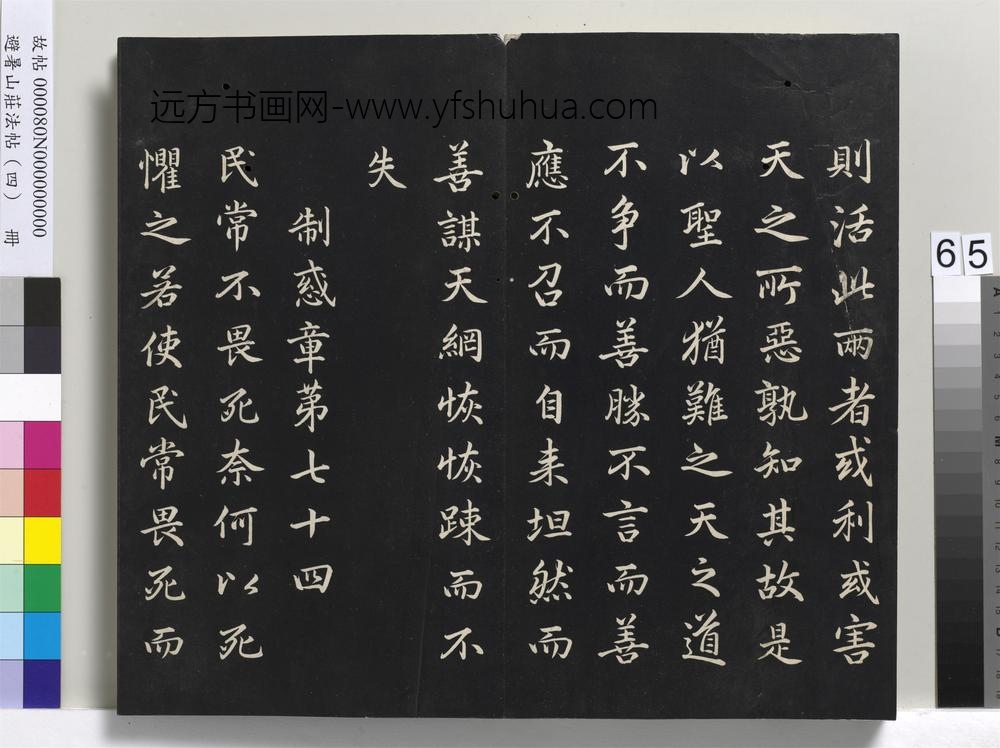 則活此兩者或利或害
天之所惡孰知其故是
以聖人猶難之天之道
不争而善勝不言而善
應不召而自来坦然而
善謀天網恢恢踈而不
失
制惑章第七十四
民常不畏死奈何以死
懼之若使民常畏死而
远方书画网-www.yfshuhua.com
故帖 000080N000000000
避暑山莊法帖（四） 冊
65